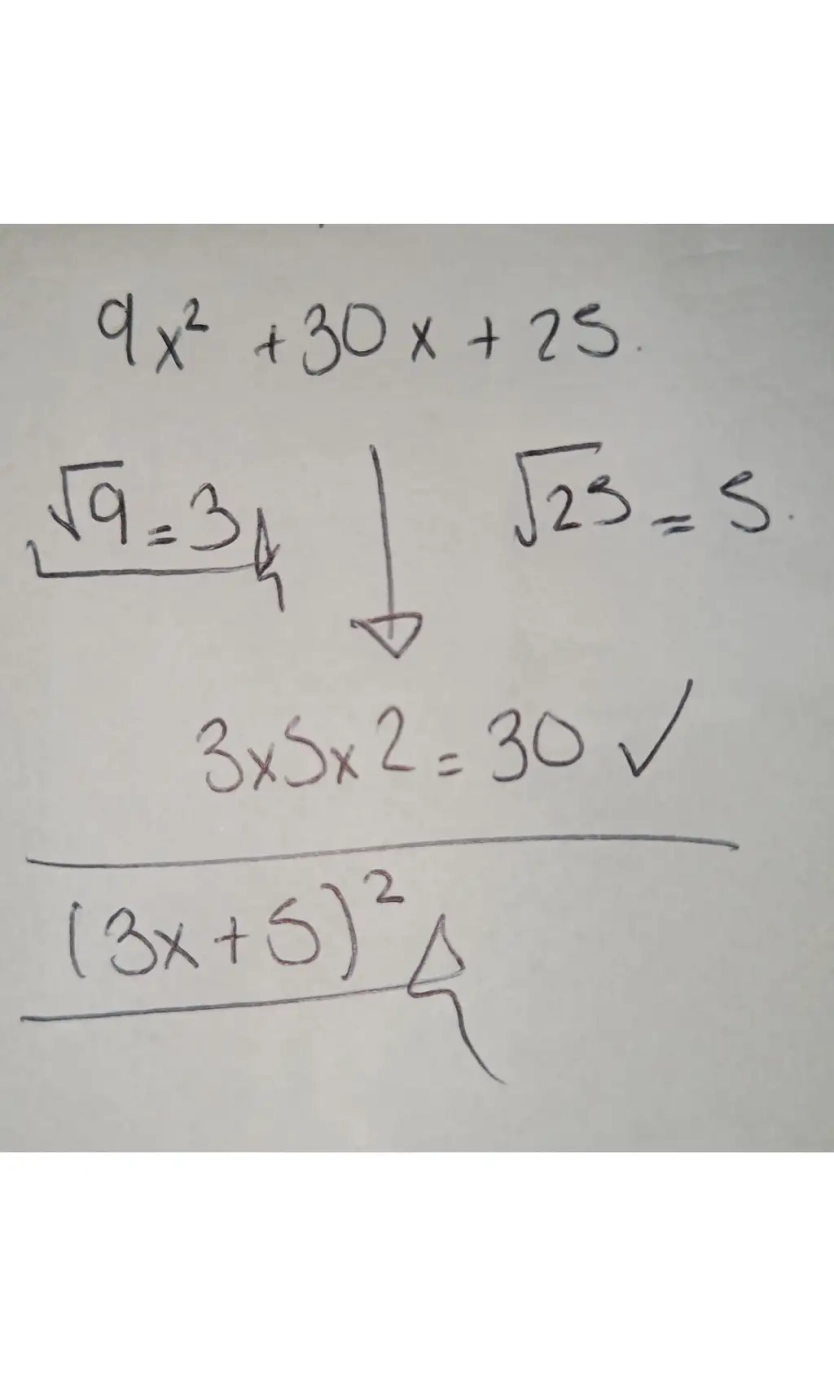 9x² +30x + 25.
√9 = 3 √25 = 5.
3x5x2 = 30 ✓
(3x+5)²